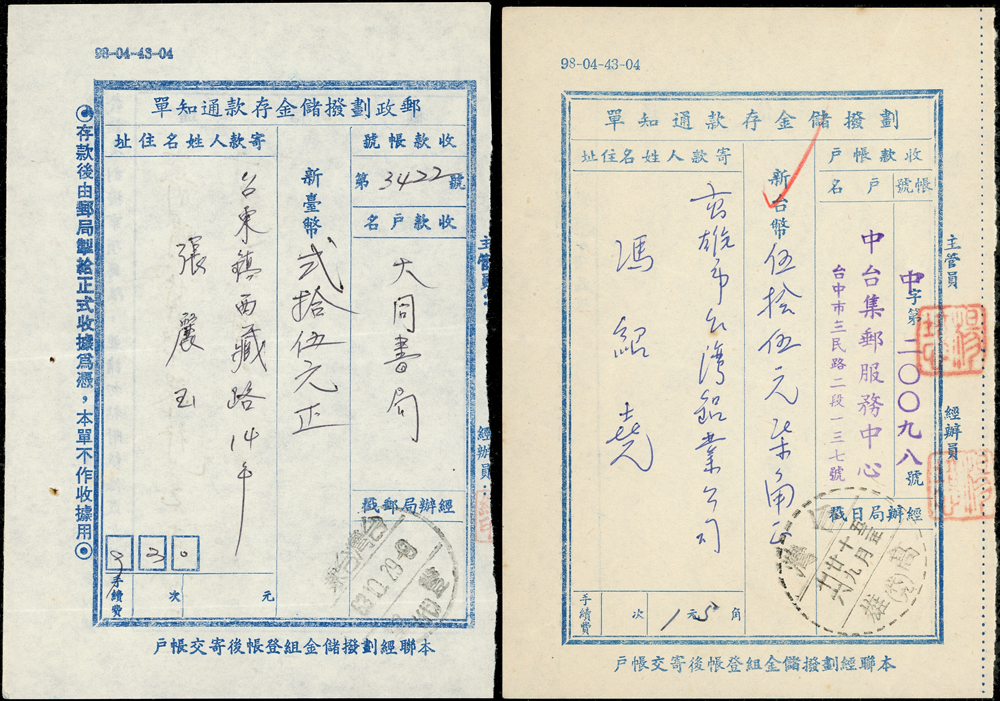 98-04-43-04
郵政劃撥儲金存款通知單
收款帳號
第3422號
收款戶名
大同書局
經辦局郵戳
新臺幣
弍拾伍元正
寄款人姓名住址
台東鎮西藏路14号
張麗玉
手續費
次
元
主管員
經辦員
◎存款後由郵局掣給正式收據為憑，本單不作收據用◎
本聯經劃撥儲金組登帳後寄交帳戶
98-04-43-04
劃撥儲金存款通知單
收款帳戶
帳號
戶名
中字第二〇〇九八號
中台集郵服務中心
台中市三民路二段一三七號
經辦局日戳
新台幣
伍拾伍元柒角正
寄款人姓名住址
高雄市台灣鋁業公司
馮紹堯
手續費
次
1元5角
主管員
經辦員
高雄
台灣
本聯經劃撥儲金組登帳後寄交帳戶